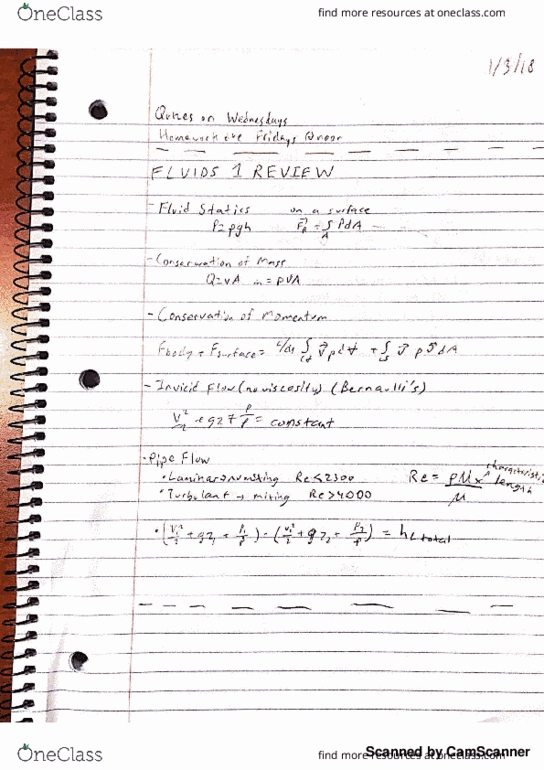 OneClass
find more resources at oneclass.com
1/3/18
Quizes on Wednesdays
Homework due Fridays @ noon
FLUIDS 1 REVIEW
- Fluid Statics on a surface
P=ρgh F⃗_R = ∫_A P dA
- Conservation of Mass
Q=vA ṁ=ρVA
- Conservation of Momentum
F_body + F_surface = d/dt ∫_cv v⃗ρd∀ + ∫_cs v⃗ ρv⃗ dA
- Invicid Flow (no viscosity) (Bernoulli's)
V²/2 + gz + P/ρ = constant
- Pipe Flow
• Laminar → no mixing Re≤2300
• Turbulant → mixing Re>4000
Re = ρUx/μ characteristic length
• (V₁²/2 + gz₁ + P₁/ρ) - (V₂²/2 + gz₂ + P₂/ρ) = h_L total
OneClass
find more resources at oneclass.com
Scanned by CamScanner